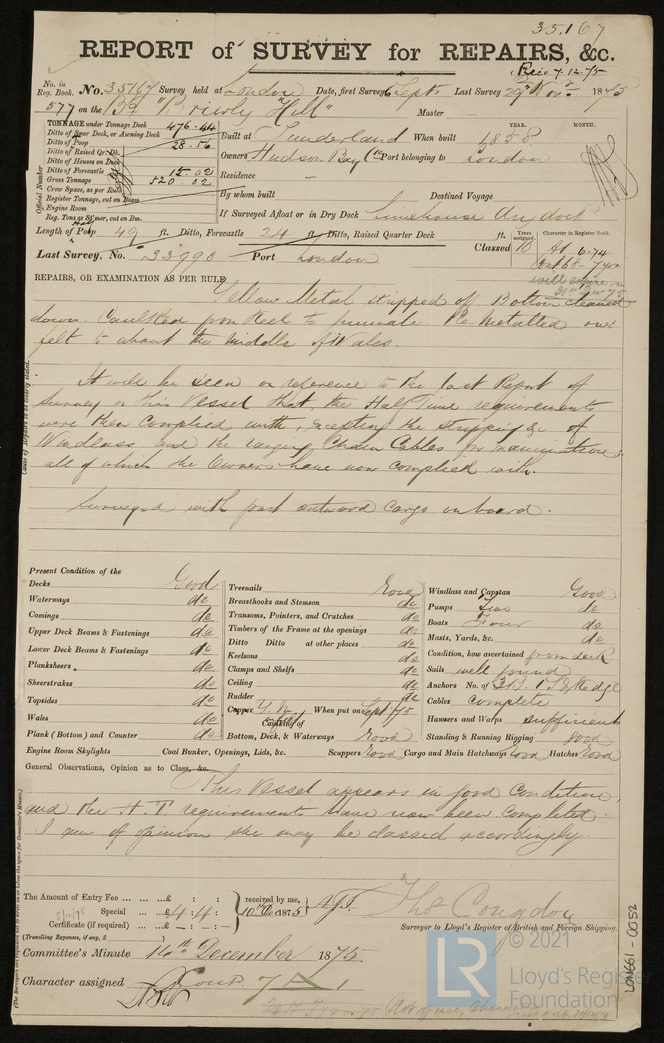 35.167
REPORT of SURVEY for REPAIRS, &c.
Rec 7.12.75
No. in Reg. Book. No. 35167 Survey held at London Date, first Survey 6 Sept Last Survey 29th Nov 1875
577 on the Bq "Brierly Hill" Master
TONNAGE under Tonnage Deck 476.44
Ditto of Spar Deck, or Awning Deck
Ditto of Poop 28.56
Ditto of Raised Qr. Dk.
Ditto of Houses on Deck
Ditto of Forecastle 15.02
Gross Tonnage 520.02
Crew Space, as per Rule
Register Tonnage, cut on Beam
Engine Room
Reg. Tons as St'mer, cut on Bm.
Official Number
YEAR. MONTH.
Built at Sunderland When built 1858
Owners Hudson Bay Co Port belonging to London
Residence
By whom built Destined Voyage
If Surveyed Afloat or in Dry Dock Limehouse Dry dock
Length of Poop 49 ft. Ditto, Forecastle 24 ft. Ditto, Raised Quarter Deck ft.
Years assigned. 10
Character in Register Book.
Classed A1 6.74
Cont 68-7 yrs
Last Survey, No. 33990 Port London
REPAIRS, OR EXAMINATION AS PER RULE
Yellow Metal stripped off Bottom cleaned
down Caulked from Keel to gunwale. Re Metalled over
felt to about the middle of Wales.
It will be seen on reference to the last Report of
Survey on this Vessel that, the Half Time requirements
were then complied with, excepting the stripping &c of
Windlass and the ranging Chain Cables for examination,
all of which the Owners have now complied with.
Surveyed with part outward Cargo on board.
Present Condition of the
Decks Good
Waterways do
Comings do
Upper Deck Beams & Fastenings do
Lower Deck Beams & Fastenings do
Planksheers do
Sheerstrakes do
Topsides do
Wales do
Plank (Bottom) and Counter do
Treenails Good
Breasthooks and Stemson do
Transoms, Pointers, and Crutches do
Timbers of the Frame at the openings do
Ditto Ditto at other places do
Keelsons do
Clamps and Shelfs do
Ceiling do
Rudder do
Copper Y.M. When put on Sept /75
Caulking of
Bottom, Deck, & Waterways Good
Windlass and Capstan Good
Pumps Two do
Boats Four do
Masts, Yards, &c. do
Condition, how ascertained from deck
Sails well found
Anchors No. of 3 B. 1 S & Kedge
Cables complete
Hawsers and Warps sufficient
Standing & Running Rigging good
Engine Room Skylights Coal Bunker, Openings, Lids, &c. Scuppers Good Cargo and Main Hatchways Good Hatches Good
General Observations, Opinion as to Class, &c.
This Vessel appears in good Condition,
and the H.T. requirements have now been completed.
I am of opinion she may be classed accordingly.
The Amount of Entry Fee ... ... ...£ : :
Special ... ...£ 4 : 4 :
Certificate (if required) ... £ - : - :
(Travelling Expenses, if any, £ )
received by me,
10th Dec 1875
Thos Congdon
Surveyor to Lloyd's Register of British and Foreign Shipping.
Committee's Minute 14th December 1875.
Character assigned Cont. 7 A 1
© 2021
LR
Lloyd's Register
Foundation
LON661-0052